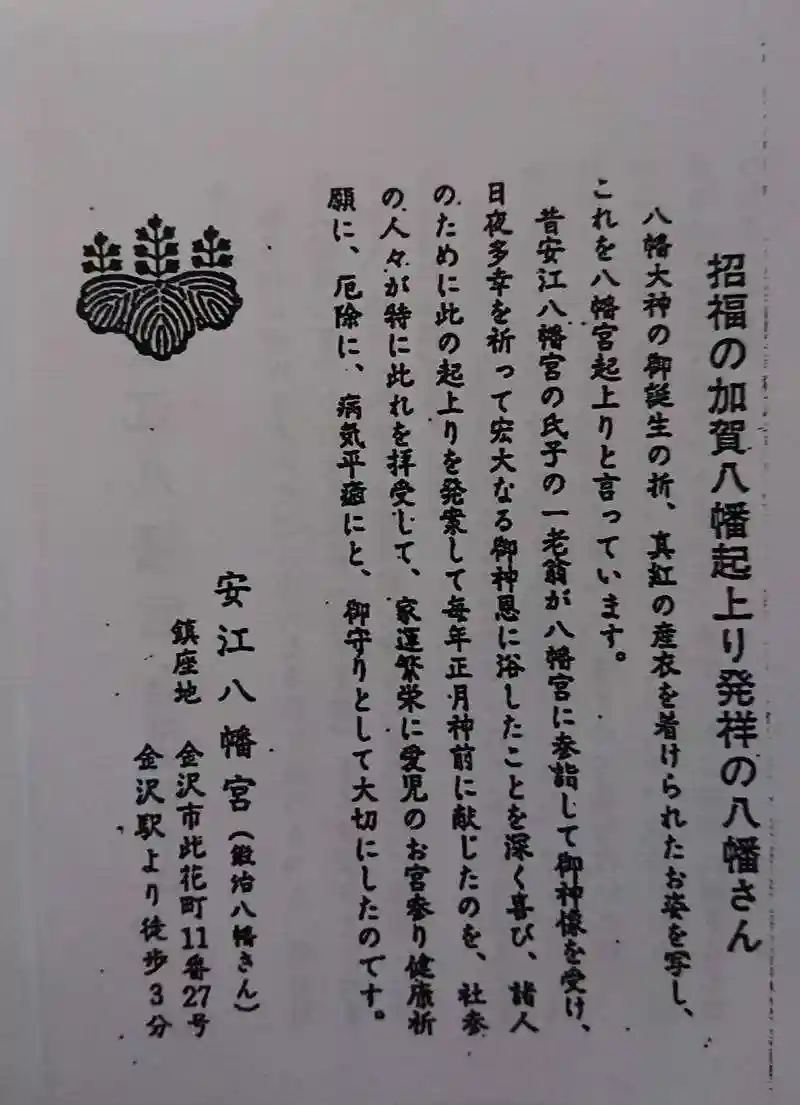 招福の加賀八幡起上り発祥の八幡さん
八幡大神の御誕生の折、真紅の産衣を着けられたお姿を写し、
これを八幡宮起上りと言っています。
昔安江八幡宮の氏子の一老翁が八幡宮に参詣して御神像を受け、
日夜多幸を祈って宏大なる御神恩に浴したことを深く喜び、諸人
のために此の起上りを発案して毎年正月神前に献じたのを、社参
の人々が特に此れを拝受して、家運繁栄に愛児のお宮参り健康祈
願に、厄除に、病気平癒にと、御守りとして大切にしたのです。
安江八幡宮(鍛冶八幡さん)
鎮座地 金沢市此花町11番27号
金沢駅より徒歩3分